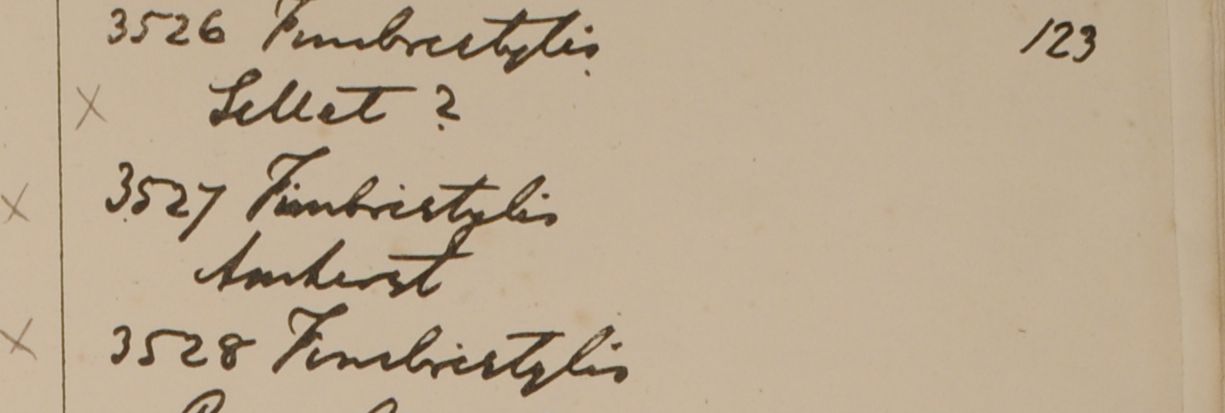 3526 Fimbristylis 123
x Sellet ?
x 3527 Fimbristylis
Amherst
x 3528 Fimbristylis